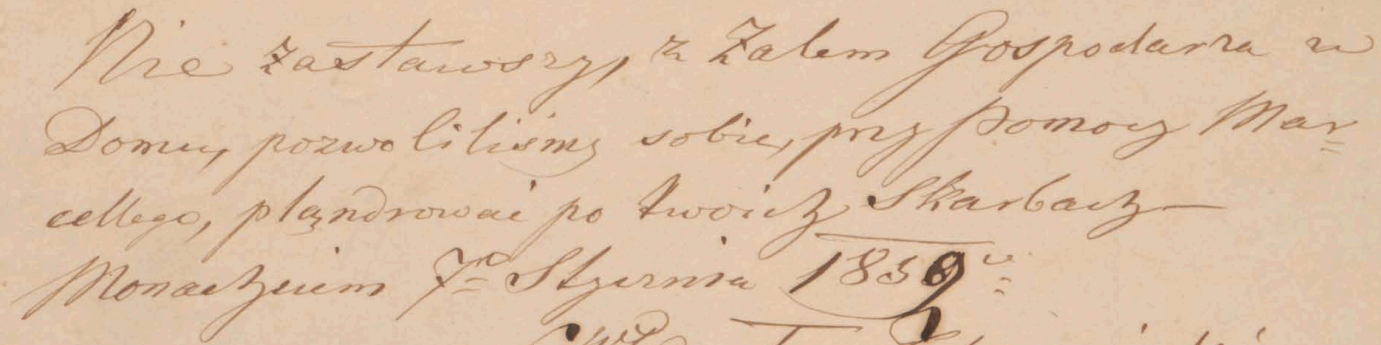 Nie zastawszy, z żalem Gospodarza w
Domu, pozwoliliśmy sobie, przy pomocy Mar=
cellego, plądrować po twoich Skarbach —
Monachium 7º Stycznia 1859